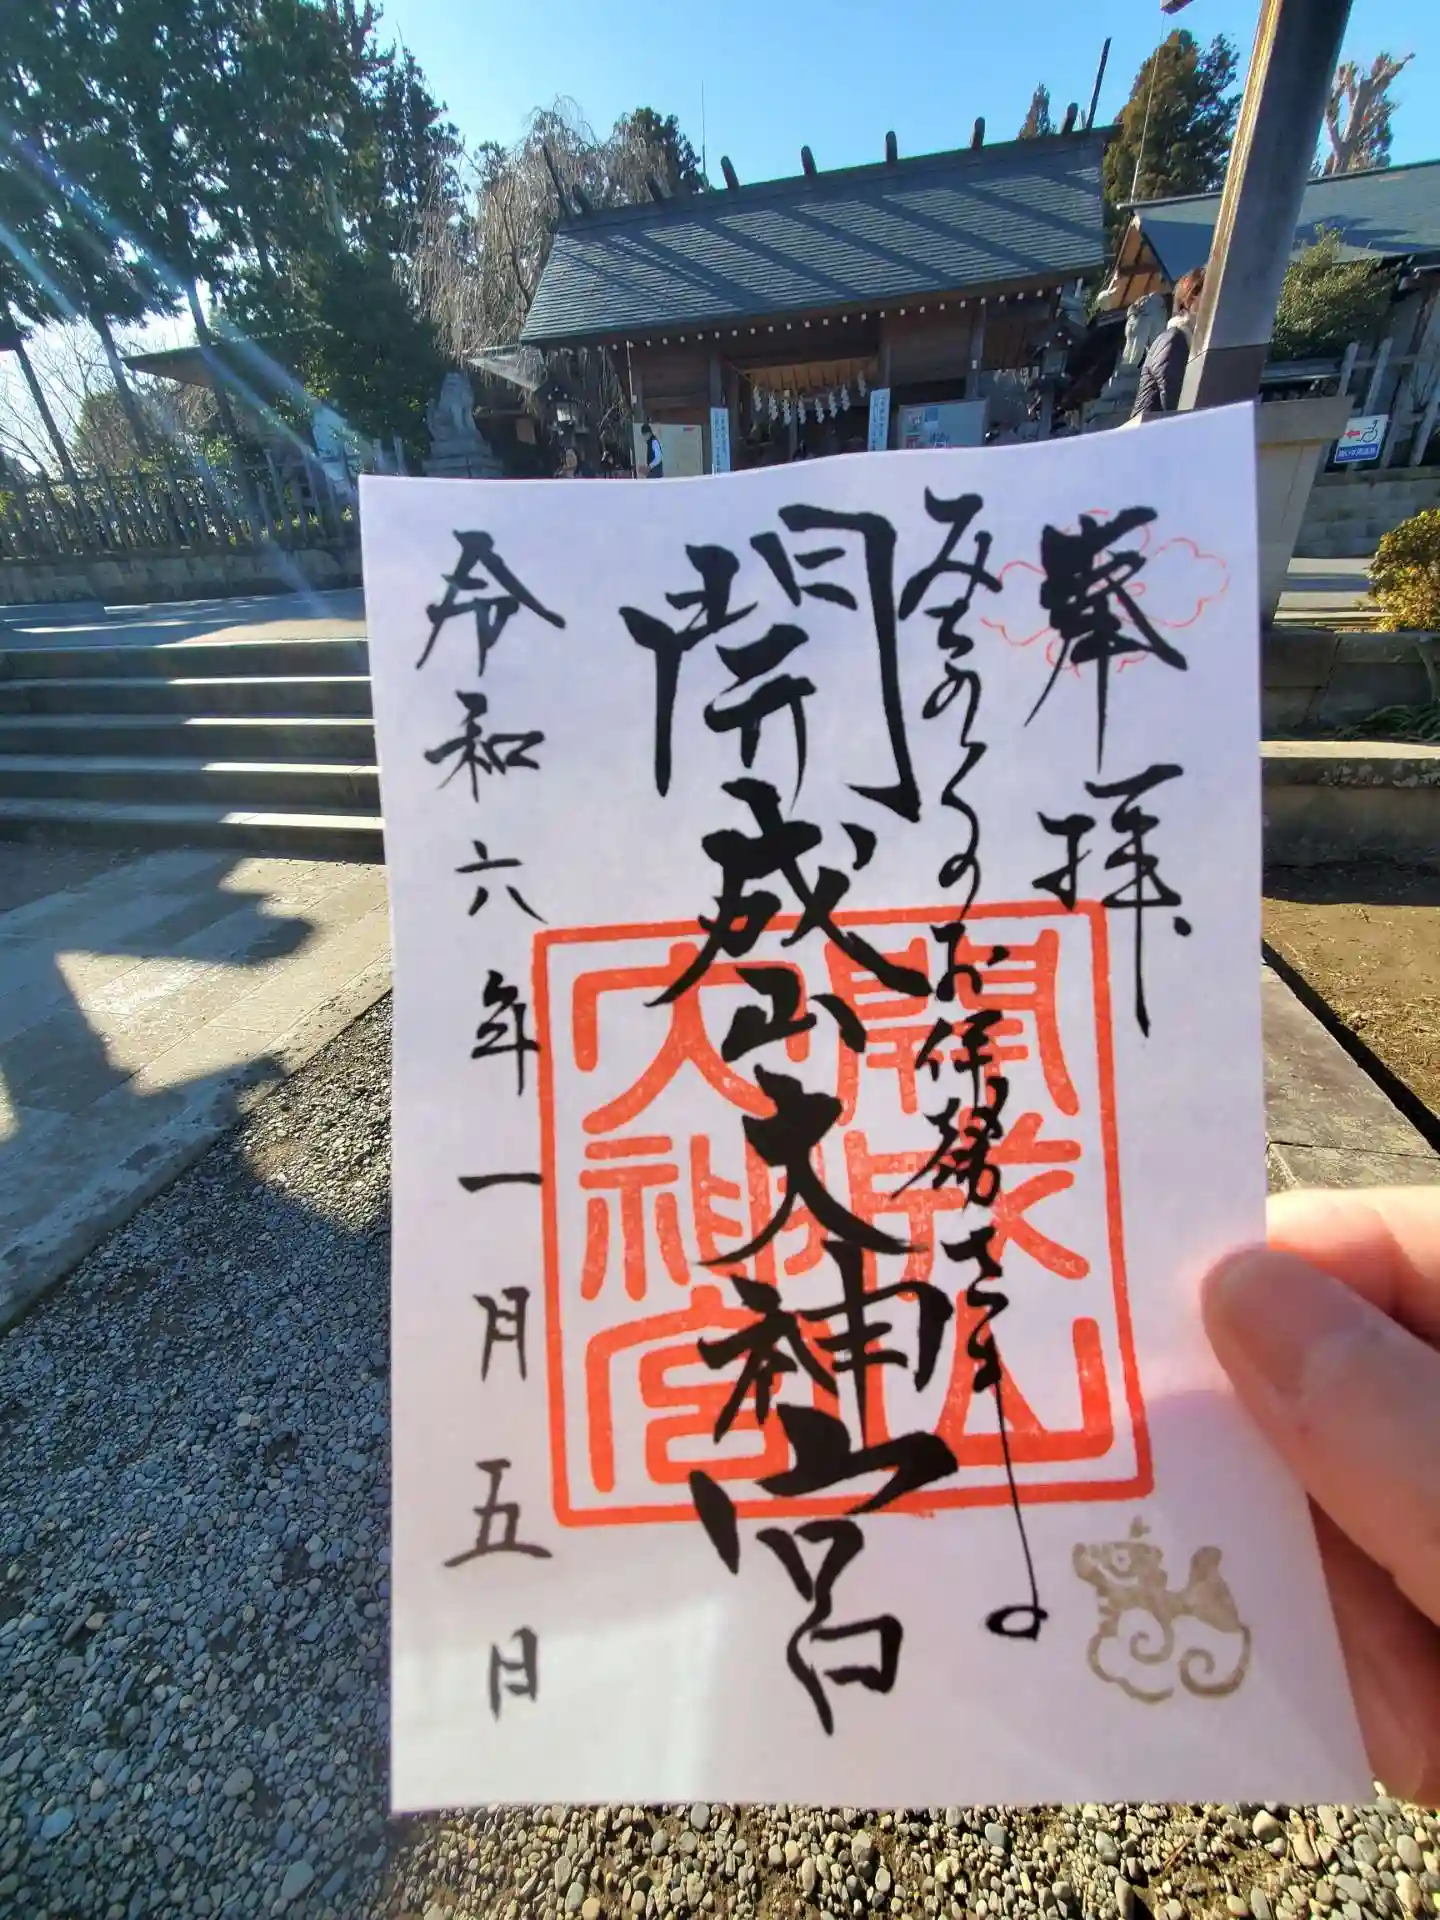 奉拝
みちのくのお伊勢さま
開成山大神宮
令和六年一月五日
開成山
大神宮